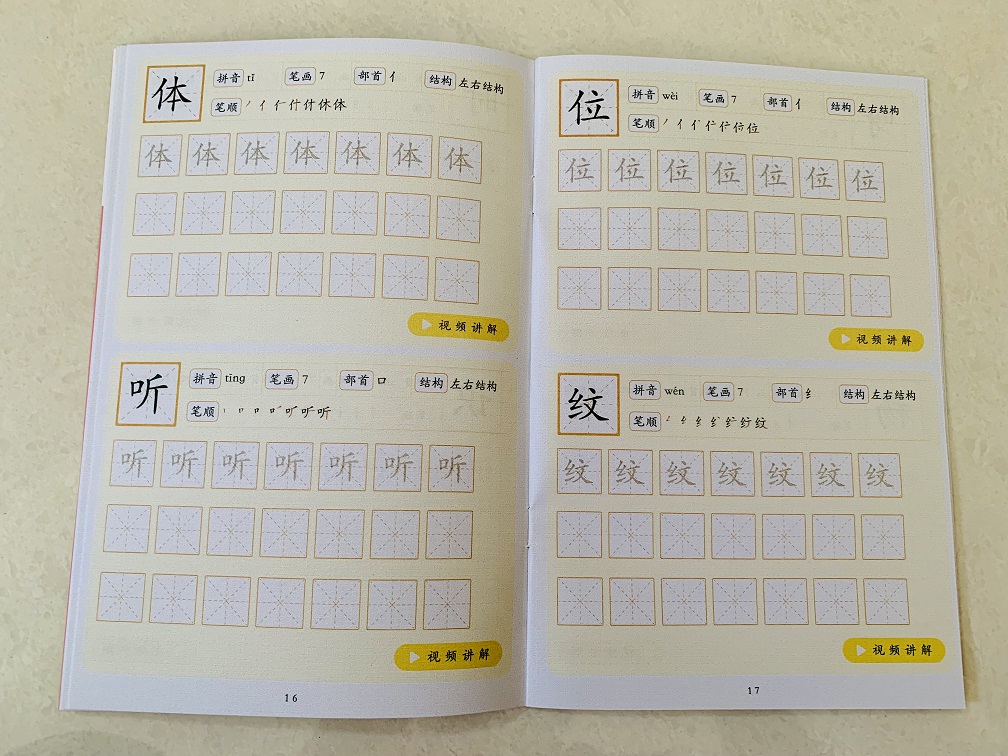 体
拼音 tǐ 笔画 7 部首 亻 结构 左右结构
笔顺 ノ 亻 仁 什 什 休 体
体 体 体 体 体 体 体
视频讲解
听
拼音 tīng 笔画 7 部首 口 结构 左右结构
笔顺 丨 口 口 口 叮 听 听
听 听 听 听 听 听 听
视频讲解
16
位
拼音 wèi 笔画 7 部首 亻 结构 左右结构
笔顺
位 位 位 位 位 位 位
视频讲解
纹
拼音 wén 笔画 7 部首 纟 结构 左右结构
笔顺
纹 纹 纹 纹 纹 纹 纹
视频讲解
17